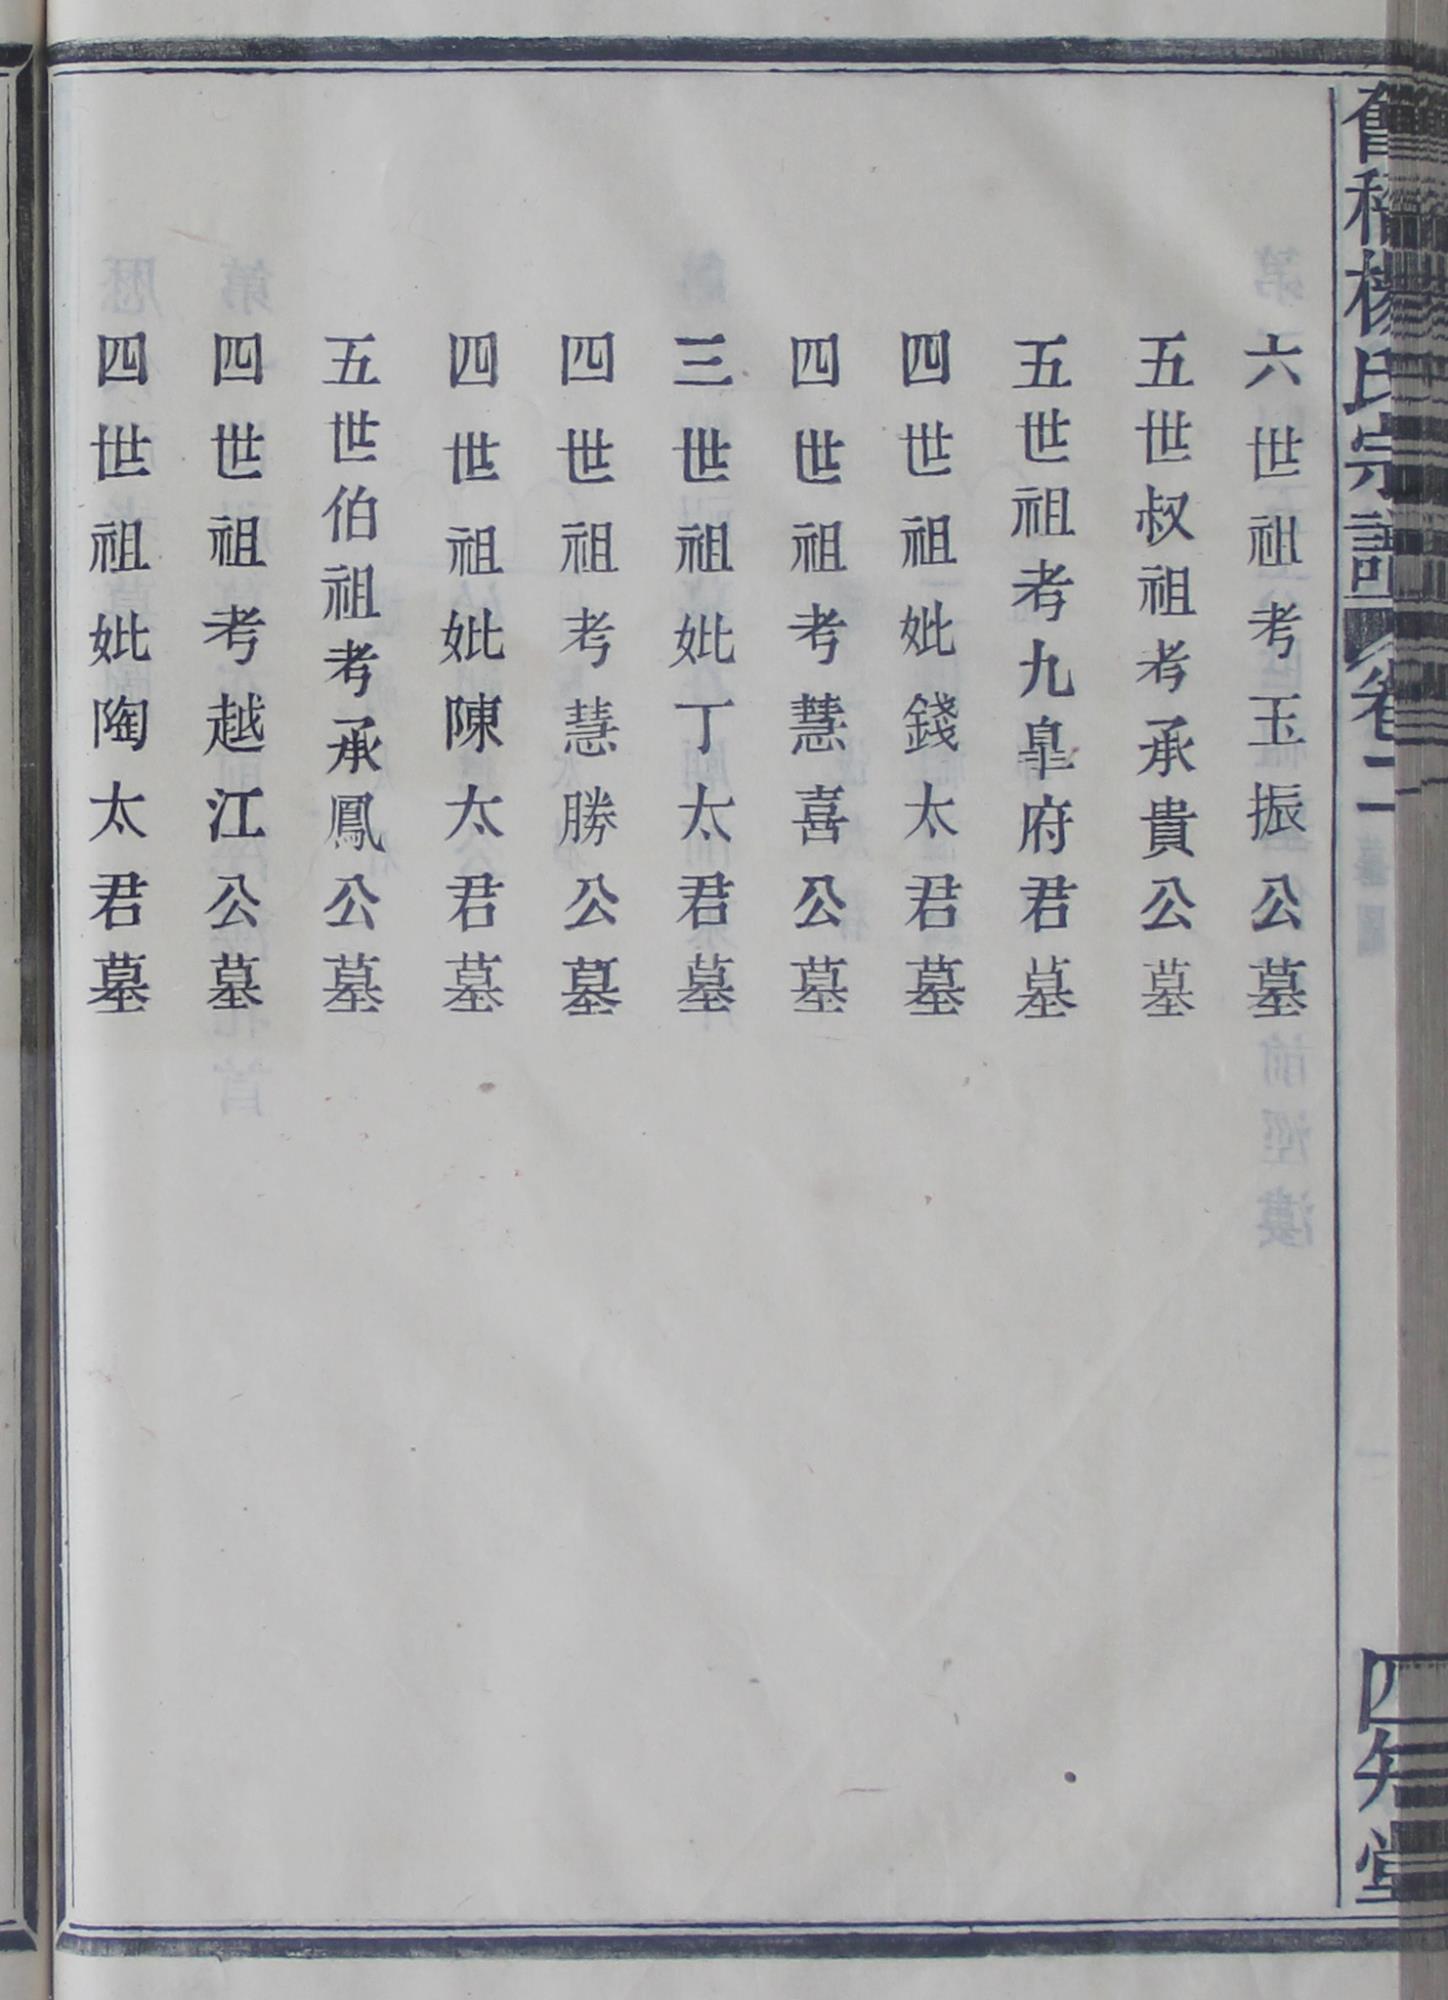 楊氏宗譜
卷二
四知堂
六世祖考玉振公墓
五世叔祖考承貴公墓
五世祖考九臯府君墓
四世祖妣錢太君墓
四世祖考慧喜公墓
三世祖妣丁太君墓
四世祖考慧勝公墓
四世祖妣陳太君墓
五世伯祖考承鳳公墓
四世祖考越江公墓
四世祖妣陶太君墓